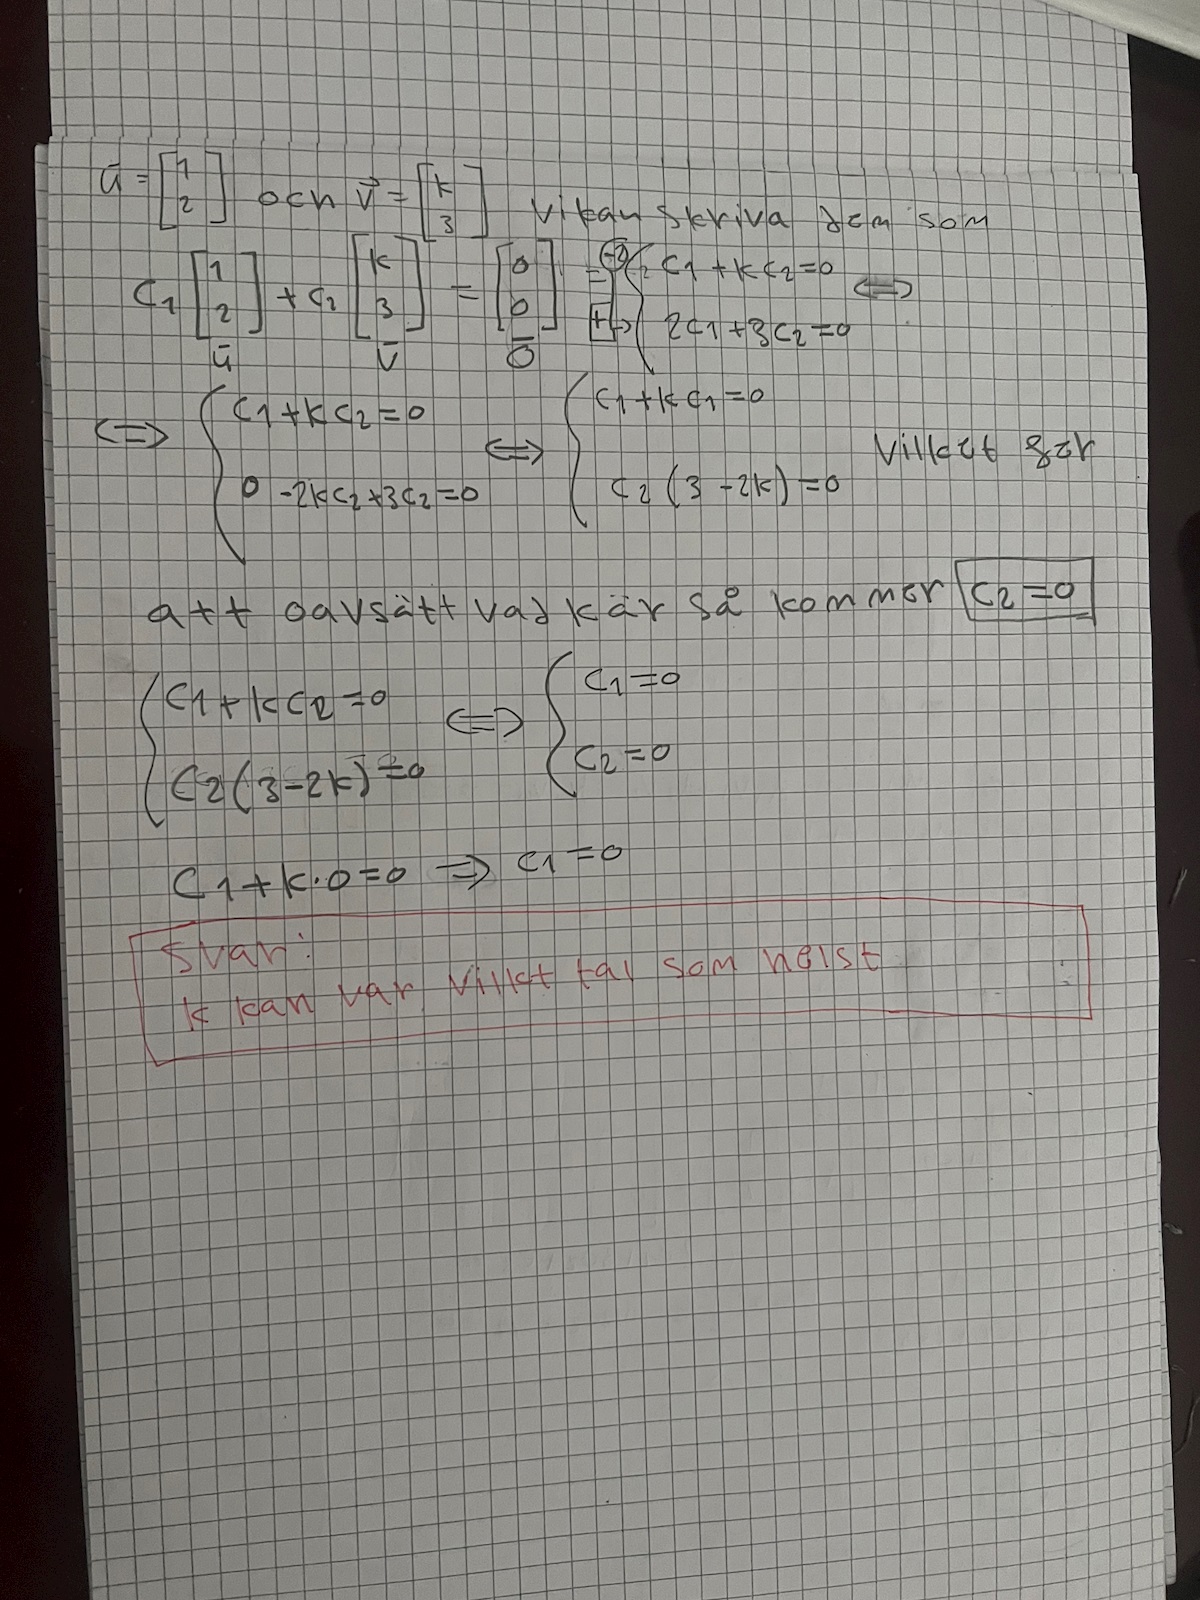 ū = [1 2] och v⃗ = [k 3] vi kan skriva dem som
c1 [1 2] + c2 [k 3] = [0 0] = { c1 + kc2 = 0 ⇔
ū v̄ 0̄ { 2c1 + 3c2 = 0
⇔ { c1 + kc2 = 0 ⇔ { c1 + kc1 = 0
{ 0 - 2kc2 + 3c2 = 0 { c2 (3 - 2k) = 0 vilket gör
att oavsätt vad k är så kommer c2 = 0
{ c1 + kc2 = 0 ⇔ { c1 = 0
{ c2 (3 - 2k) = 0 { c2 = 0
c1 + k · 0 = 0 ⇒ c1 = 0
Svar:
k kan var vilket tal som helst